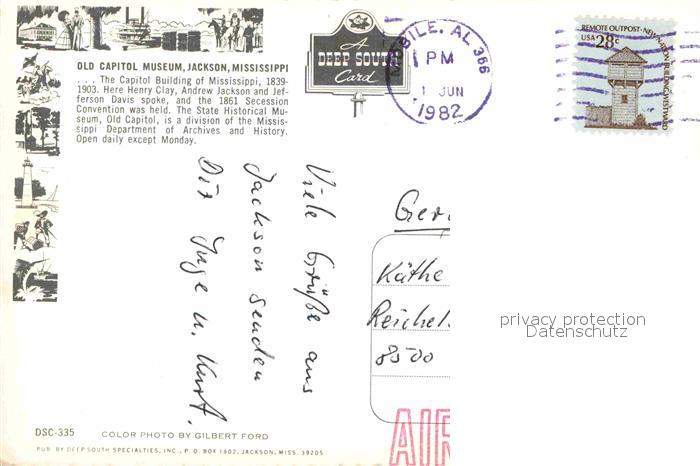 OLD CAPITOL MUSEUM, JACKSON, MISSISSIPPI
. . . The Capitol Building of Mississippi, 1839-
1903. Here Henry Clay, Andrew Jackson and Jef-
ferson Davis spoke, and the 1861 Secession
Convention was held. The State Historical Mu-
seum, Old Capitol, is a division of the Missis-
sippi Department of Archives and History.
Open daily except Monday.
A
DEEP SOUTH
Card
MOBILE, AL 366
PM
1 JUN
1982
REMOTE OUTPOST · NEW NATION BUILDING WESTWARD
USA 28c
Viele Grüße aus
Jackson senden
Dir Inge u. Kurt.
Ger
Käthe
Reichel
8500
AIR
privacy protection
Datenschutz
DSC-335
COLOR PHOTO BY GILBERT FORD
PUB. BY DEEP SOUTH SPECIALTIES, INC., P. O. BOX 1802, JACKSON, MISS. 39205